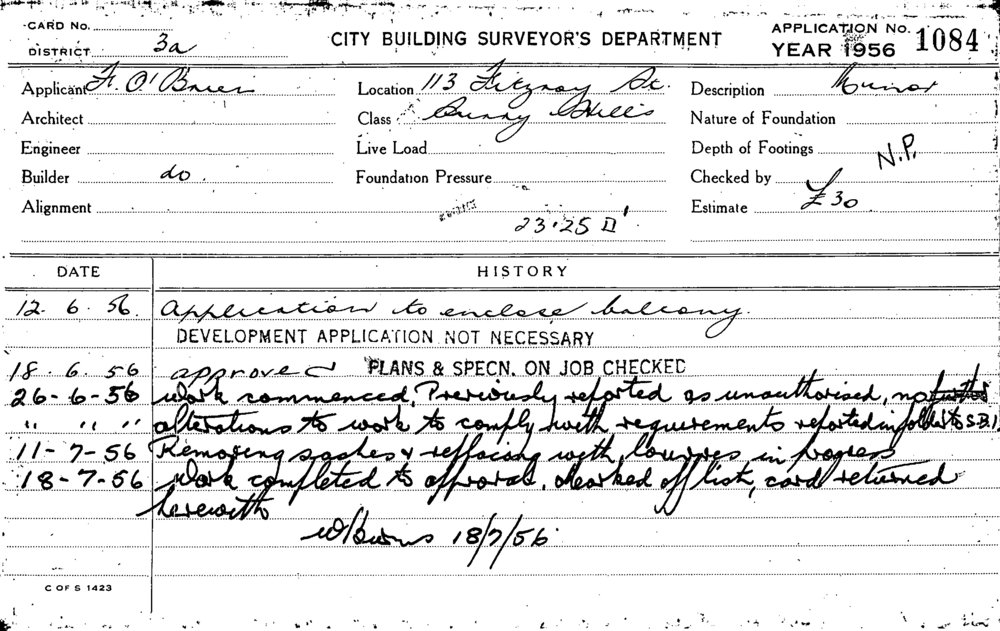 CARD No.
DISTRICT 3a
CITY BUILDING SURVEYOR'S DEPARTMENT
APPLICATION No. 1084
YEAR 1956
Applicant F. O'Brien Location 113 Fitzroy St. Description Minor
Architect Class Surry Hills Nature of Foundation
Engineer Live Load Depth of Footings N.P.
Builder do. Foundation Pressure Checked by
Alignment 23.25 □' Estimate £30
DATE HISTORY
12. 6. 56. Application to enclose balcony.
DEVELOPMENT APPLICATION NOT NECESSARY
18. 6. 56 approved PLANS & SPECN. ON JOB CHECKED
26-6-56 Work commenced. Previously reported as unauthorised, no further
" " " alterations to work to comply with requirements reported in folder to S.B.I.
11-7-56 Removing sashes & replacing with louvres in progress
18-7-56 Work completed to approval. Marked off list, card returned
herewith
W Burns 18/7/56
C OF S 1423